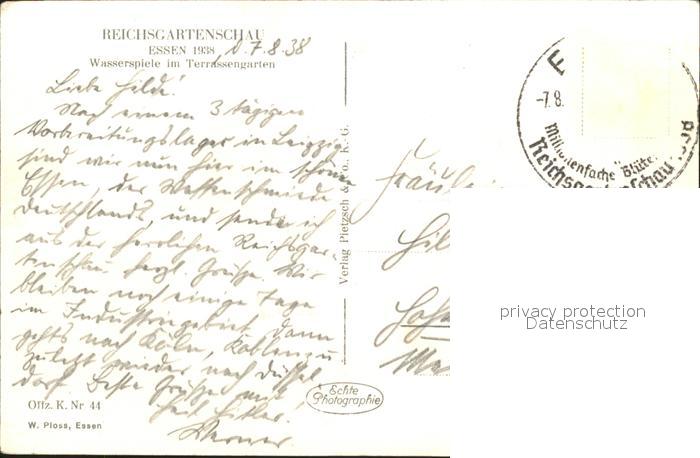 REICHSGARTENSCHAU
ESSEN 1938
Wasserspiele im Terrassengarten
d. 7.8.38
Liebe Hilde!
Nach einem 3 tägigen
Vorbereitungslager in Leipzig
sind wir nun hier im schönen
Essen, der Waffenschmiede
Deutschlands, und sende ich
aus der herrlichen Reichsgar-
tenschau herzl. Grüße. Wir
bleiben noch einige Tage
im Industriegebiet, dann
gehts nach Köln, Koblenz u
zuletzt wieder nach Düssel
dorf. Beste Grüße und
Heil Hitler!
Werner
Offz. K. Nr 44
W. Ploss, Essen
Verlag Pietzsch & Co., K. G.
Echte
Photographie
-7.8.
Millionenfache Blüte
Reichsgartenschau 1938
Fräulein
Hil
privacy protection
Datenschutz